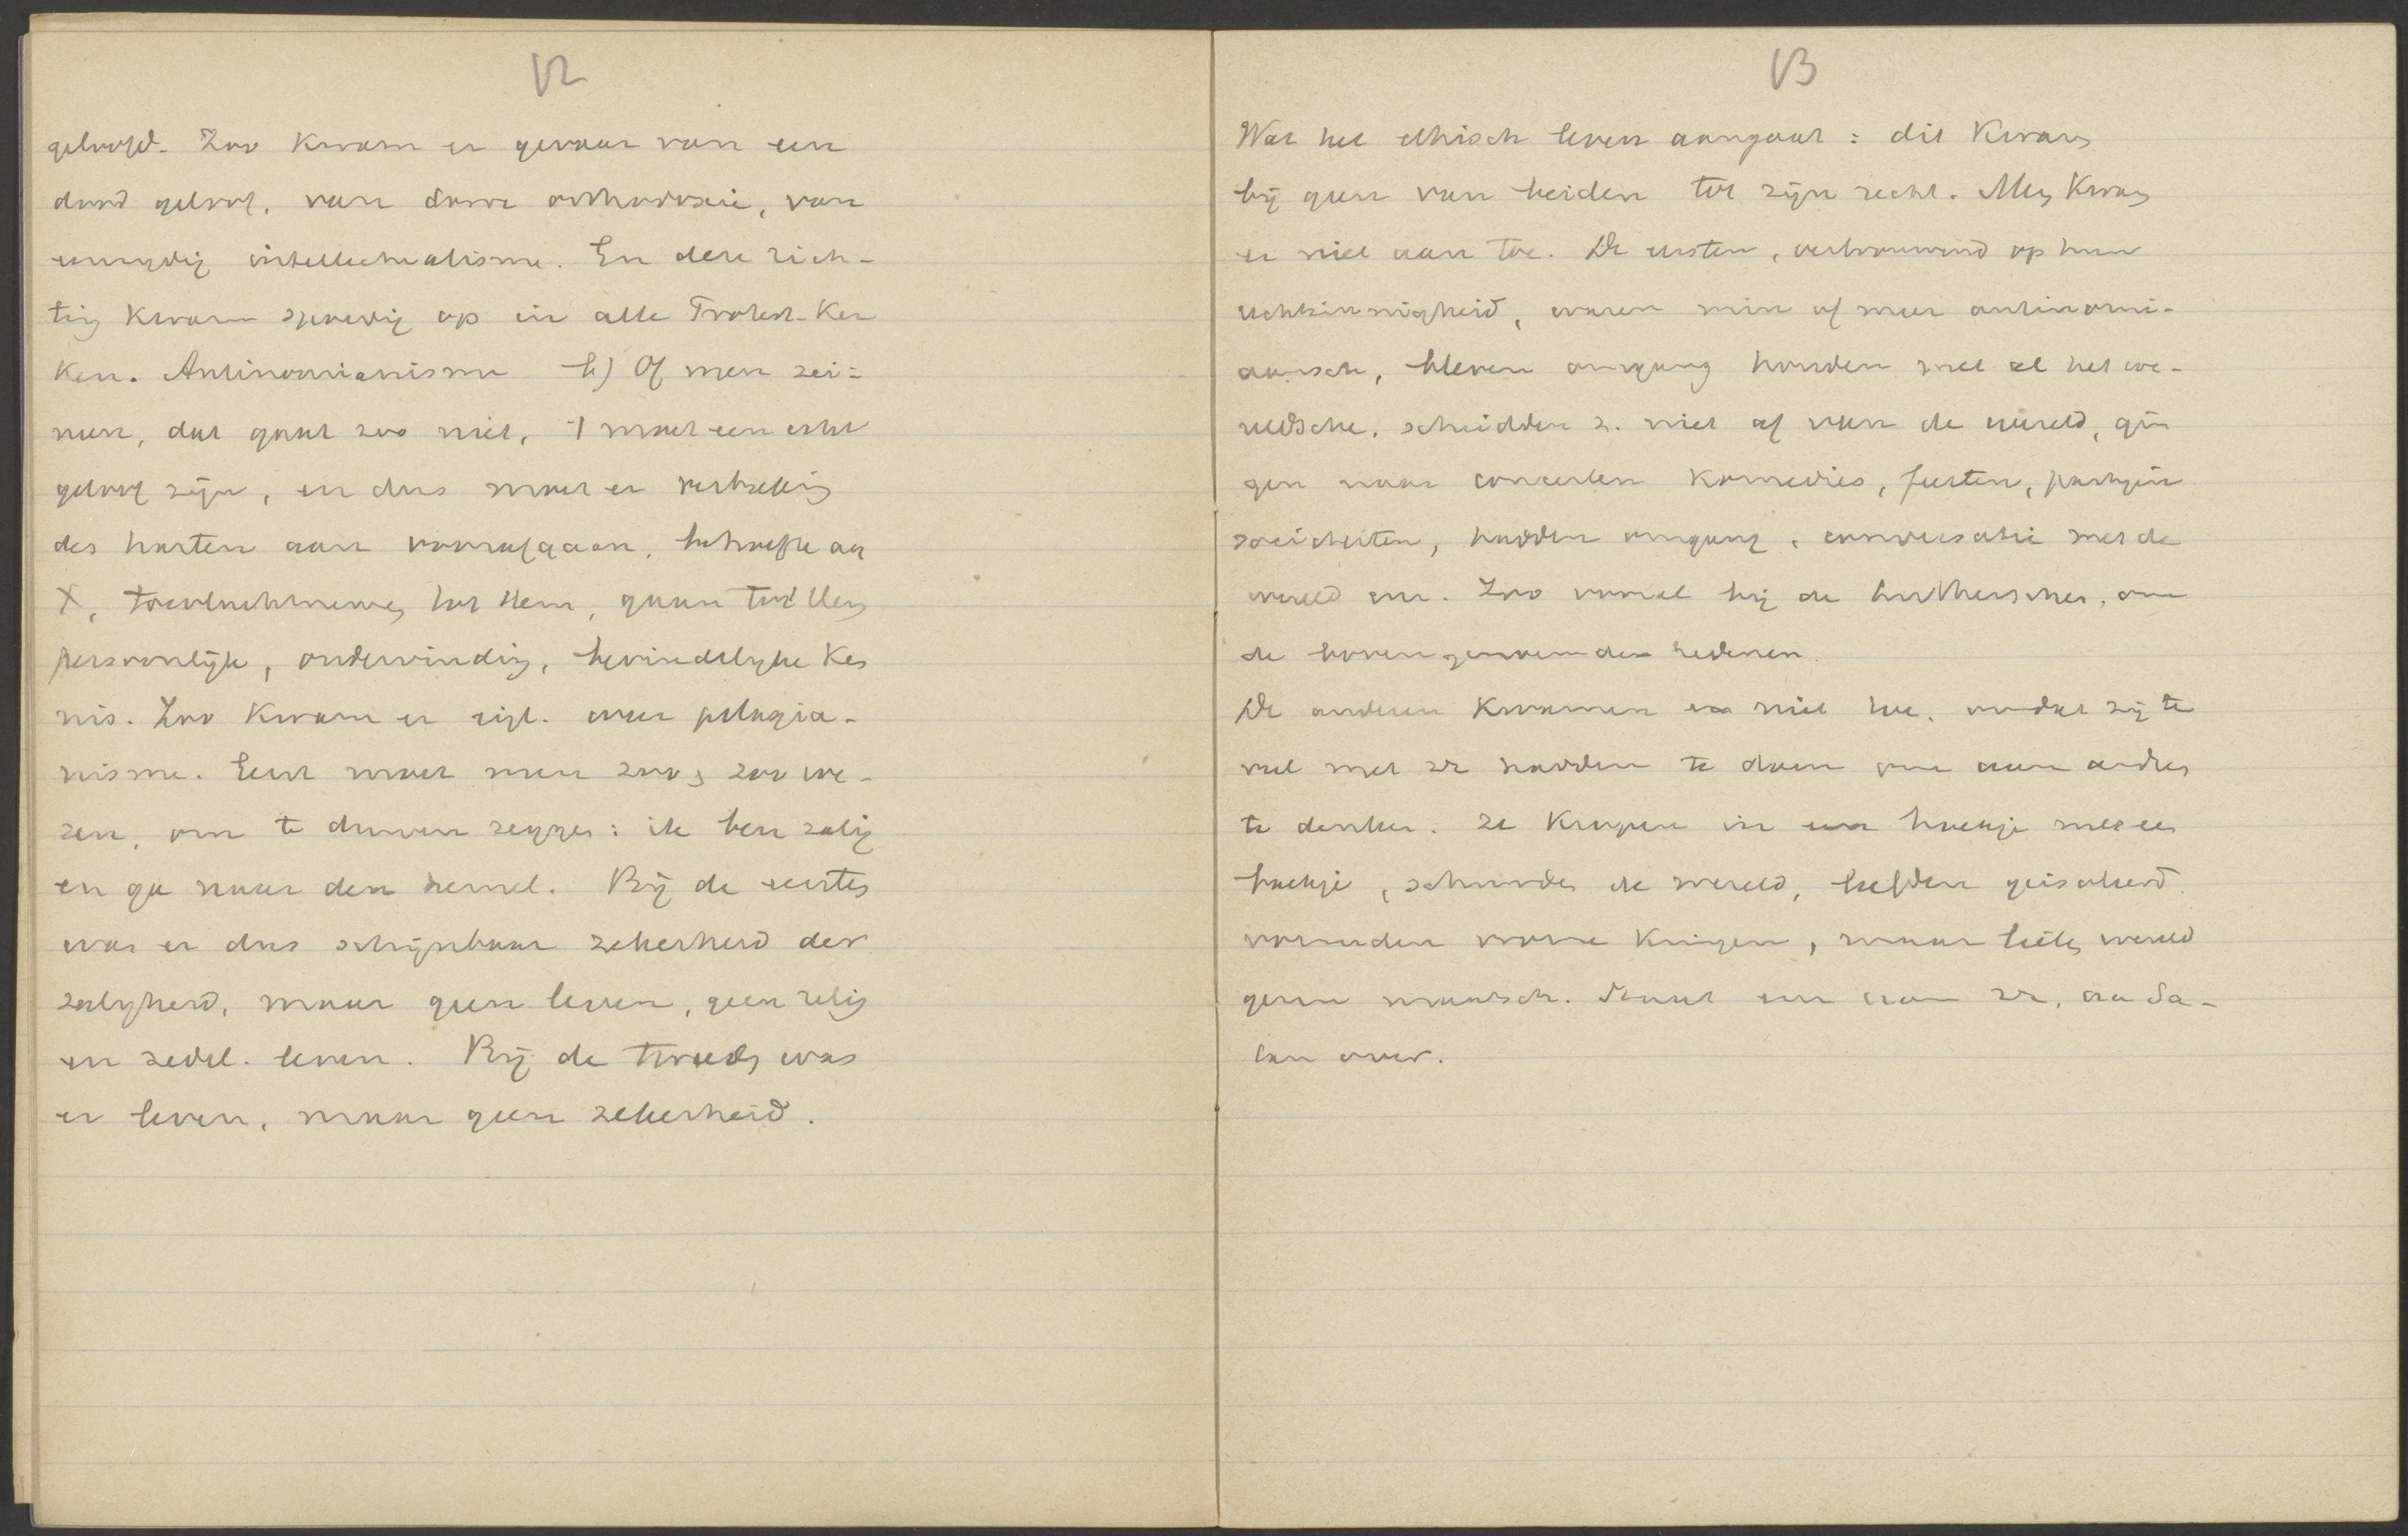 12
geloofd. Zoo kwam er gevaar van een
dood geloof, van dorre orthodoxie, van
eenzydig intellectualisme. En deze rich-
ting kwam spoedig op in alle Protest. Ker
ken. Antinomianisme b) Of men zei-
nen, dat gaat zoo niet, 't moet een echt
geloof zijn, en dus moet er verbreking
des harten aan voorafgaan, behoefte aan
X, toevluchtnemen tot Hem, gaan tot Hem
persoonlijke, ondervinding, bevindelyke ken
nis. Zoo kwam er eigl. weer pelagia-
nisme. Eerst moet men zoo en zoo we-
zen, om te durven zeggen: ik ben zalig
en ga naar den hemel. Bij de eersten
was er dus schijnbaar zekerheid der
zaligheid, maar geen leven, geen relig
en zedel. leven. Bij de tweeden was
er leven, maar geen zekerheid.
13
Wat het ethisch leven aangaat: dit kwam
bij geen van beiden tot zijn recht. Men kwam
er niet aan toe. De eersten, vertrouwend op hun
rechtzinnigheid, waren min of meer antinomi-
aansch, bleven omgang houden met al het we-
reldsche, scheidden z. niet af van de wereld, gin
gen naar concerten komedies, feesten, partijen
societeiten, hadden omgang, conversatie met de
wereld enz. Zoo vooral bij de Lutherschen, om
de bovengenoemde redenen.
De anderen kwamen er niet toe, omdat zij te
veel met zr hadden te doen om aan anders
te denken. Ze kropen in een hoekje met een
boekje, schuwden de wereld, leefden geisoleerd
vormden vrome kringen, maar lieten wereld
geen mensch. Staat en aan zr, aan Sa-
tan over.